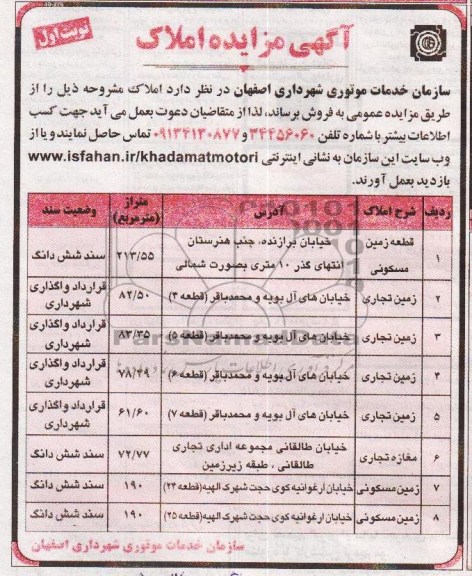 نوبت اول
آگهی مزایده املاک
سازمان خدمات موتوری شهرداری اصفهان در نظر دارد املاک مشروحه ذیل را از
طریق مزایده عمومی به فروش برساند، لذا از متقاضیان دعوت بعمل می آید جهت کسب
اطلاعات بیشتر با شماره تلفن ۳۴۴۵۶۰۶۰ و ۰۹۱۳۴۱۳۰۸۷۷ تماس حاصل نمایند و یا از
وب سایت این سازمان به نشانی اینترنتی www.isfahan.ir/khadamatmotori
بازدید بعمل آورند.
ردیف شرح املاک آدرس متراژ (مترمربع) وضعیت سند
۱ قطعه زمین مسکونی خیابان برازنده، جنب هنرستان انتهای گذر ۱۰ متری بصورت شمالی ۲۱۳/۵۵ سند شش دانگ
۲ زمین تجاری خیابان های آل بویه و محمدباقر (قطعه ۴) ۸۲/۵۰ قرارداد واگذاری شهرداری
۳ زمین تجاری خیابان های آل بویه و محمدباقر (قطعه ۵) ۸۳/۳۵ قرارداد واگذاری شهرداری
۴ زمین تجاری خیابان های آل بویه و محمدباقر (قطعه ۶) ۷۸/۴۹ قرارداد واگذاری شهرداری
۵ زمین تجاری خیابان های آل بویه و محمدباقر (قطعه ۷) ۶۱/۶۰ قرارداد واگذاری شهرداری
۶ مغازه تجاری خیابان طالقانی مجموعه اداری تجاری طالقانی ، طبقه زیرزمین ۷۲/۷۷ سند شش دانگ
۷ زمین مسکونی خیابان ارغوانیه کوی حجت شهرک الهیه (قطعه ۲۴) ۱۹۰ سند شش دانگ
۸ زمین مسکونی خیابان ارغوانیه کوی حجت شهرک الهیه (قطعه ۲۵) ۱۹۰ سند شش دانگ
سازمان خدمات موتوری شهرداری اصفهان
ParsNamadData